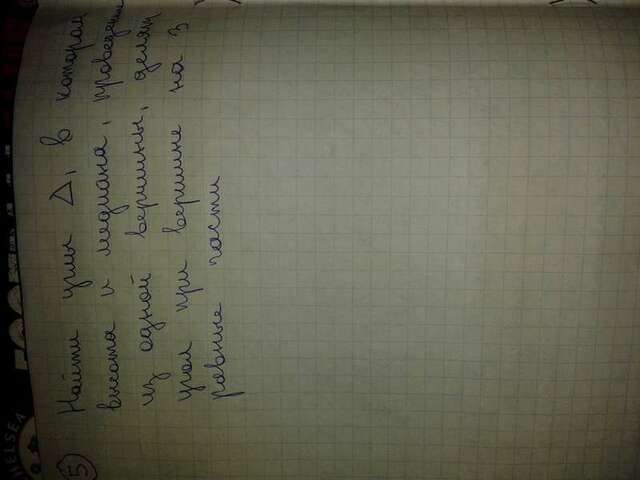 5
Найти углы Δ, в котором
высота и медиана, проведенные
из одной вершины, делят
угол при вершине на 3
равные части
HELSEA